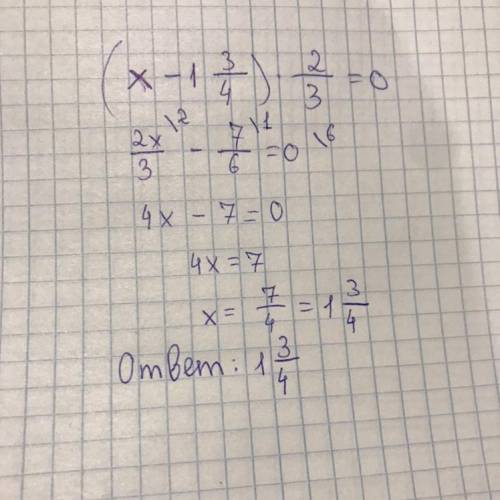 (x - 1 3/4) · 2/3 = 0
2x/3 \2 - 7/6 \1 = 0 \6
4x - 7 = 0
4x = 7
x = 7/4 = 1 3/4
Ответ: 1 3/4